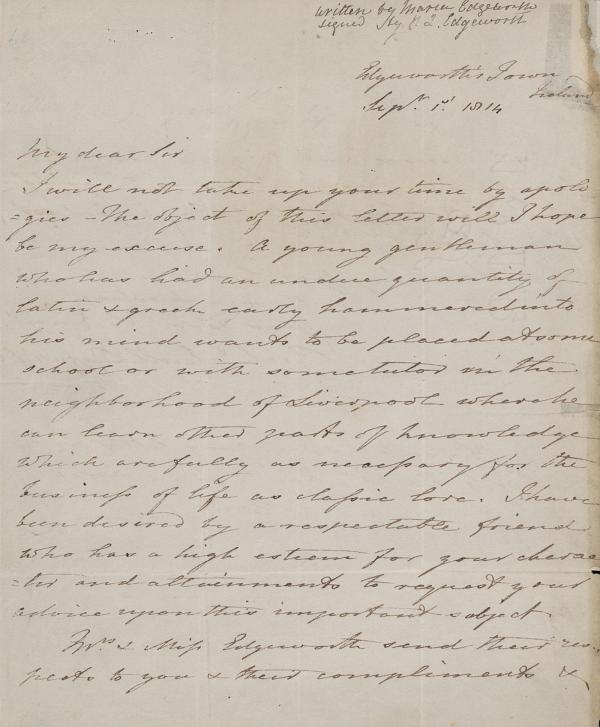 written by Maria Edgeworth
signed by R. L. Edgeworth
Edgeworth's Town
Ireland
Sepr. 1st 1814
My dear Sir
I will not take up your time by apolo
=gies - The object of this letter will I hope
be my excuse. A young gentleman
who has had an undue quantity of
latin & greek early hammered into
his mind wants to be placed at some
school or with some tutor in the
neighborhood of Liverpool where he
can learn other parts of knowledge
which are fully as necessary for the
business of life as classic lore. I have
been desired by a respectable friend
who has a high esteem for your charac
=ter and attainments to request your
advice upon this important subject
Mrs & Miss Edgeworth send their res-
pects to you & their compliments &